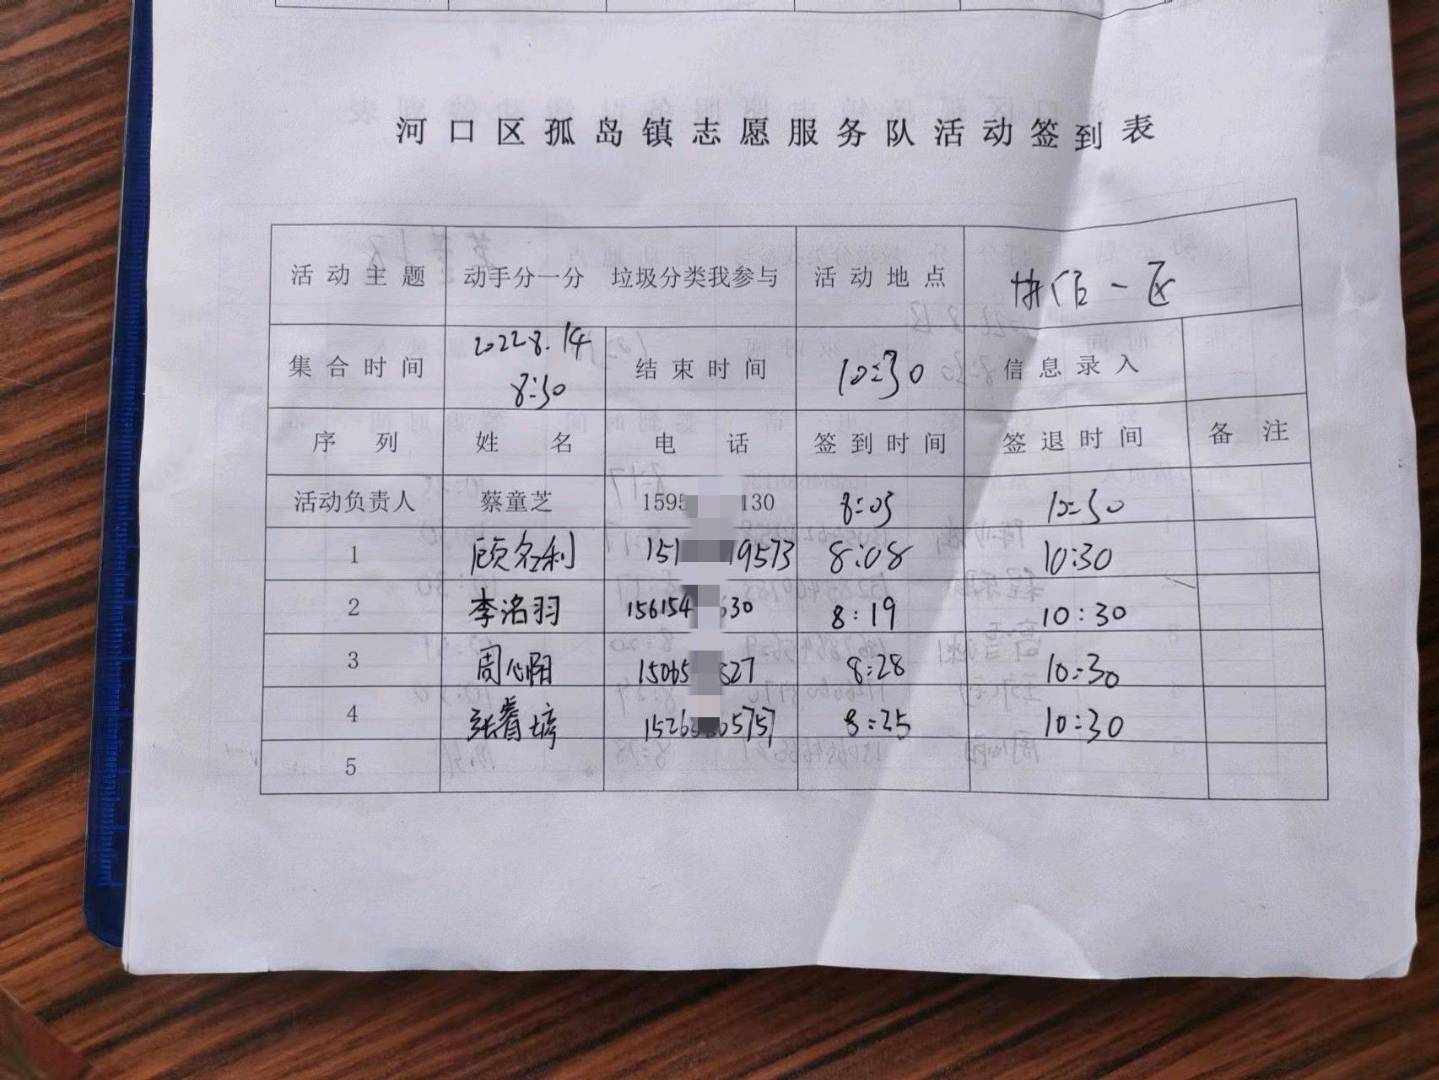 河口区孤岛镇志愿服务队活动签到表
活动主题 动手分一分 垃圾分类我参与 活动地点 一区
集合时间 2022.8.14 8:30 结束时间 10:30 信息录入
序列 姓名 电话 签到时间 签退时间 备注
活动负责人 蔡童芝 1595 130 8:05 10:30
1 顾名利 151 19573 8:08 10:30
2 李洺羽 156154 630 8:19 10:30
3 周心阳 15065 827 8:28 10:30
4 张 1526 05757 8:25 10:30
5